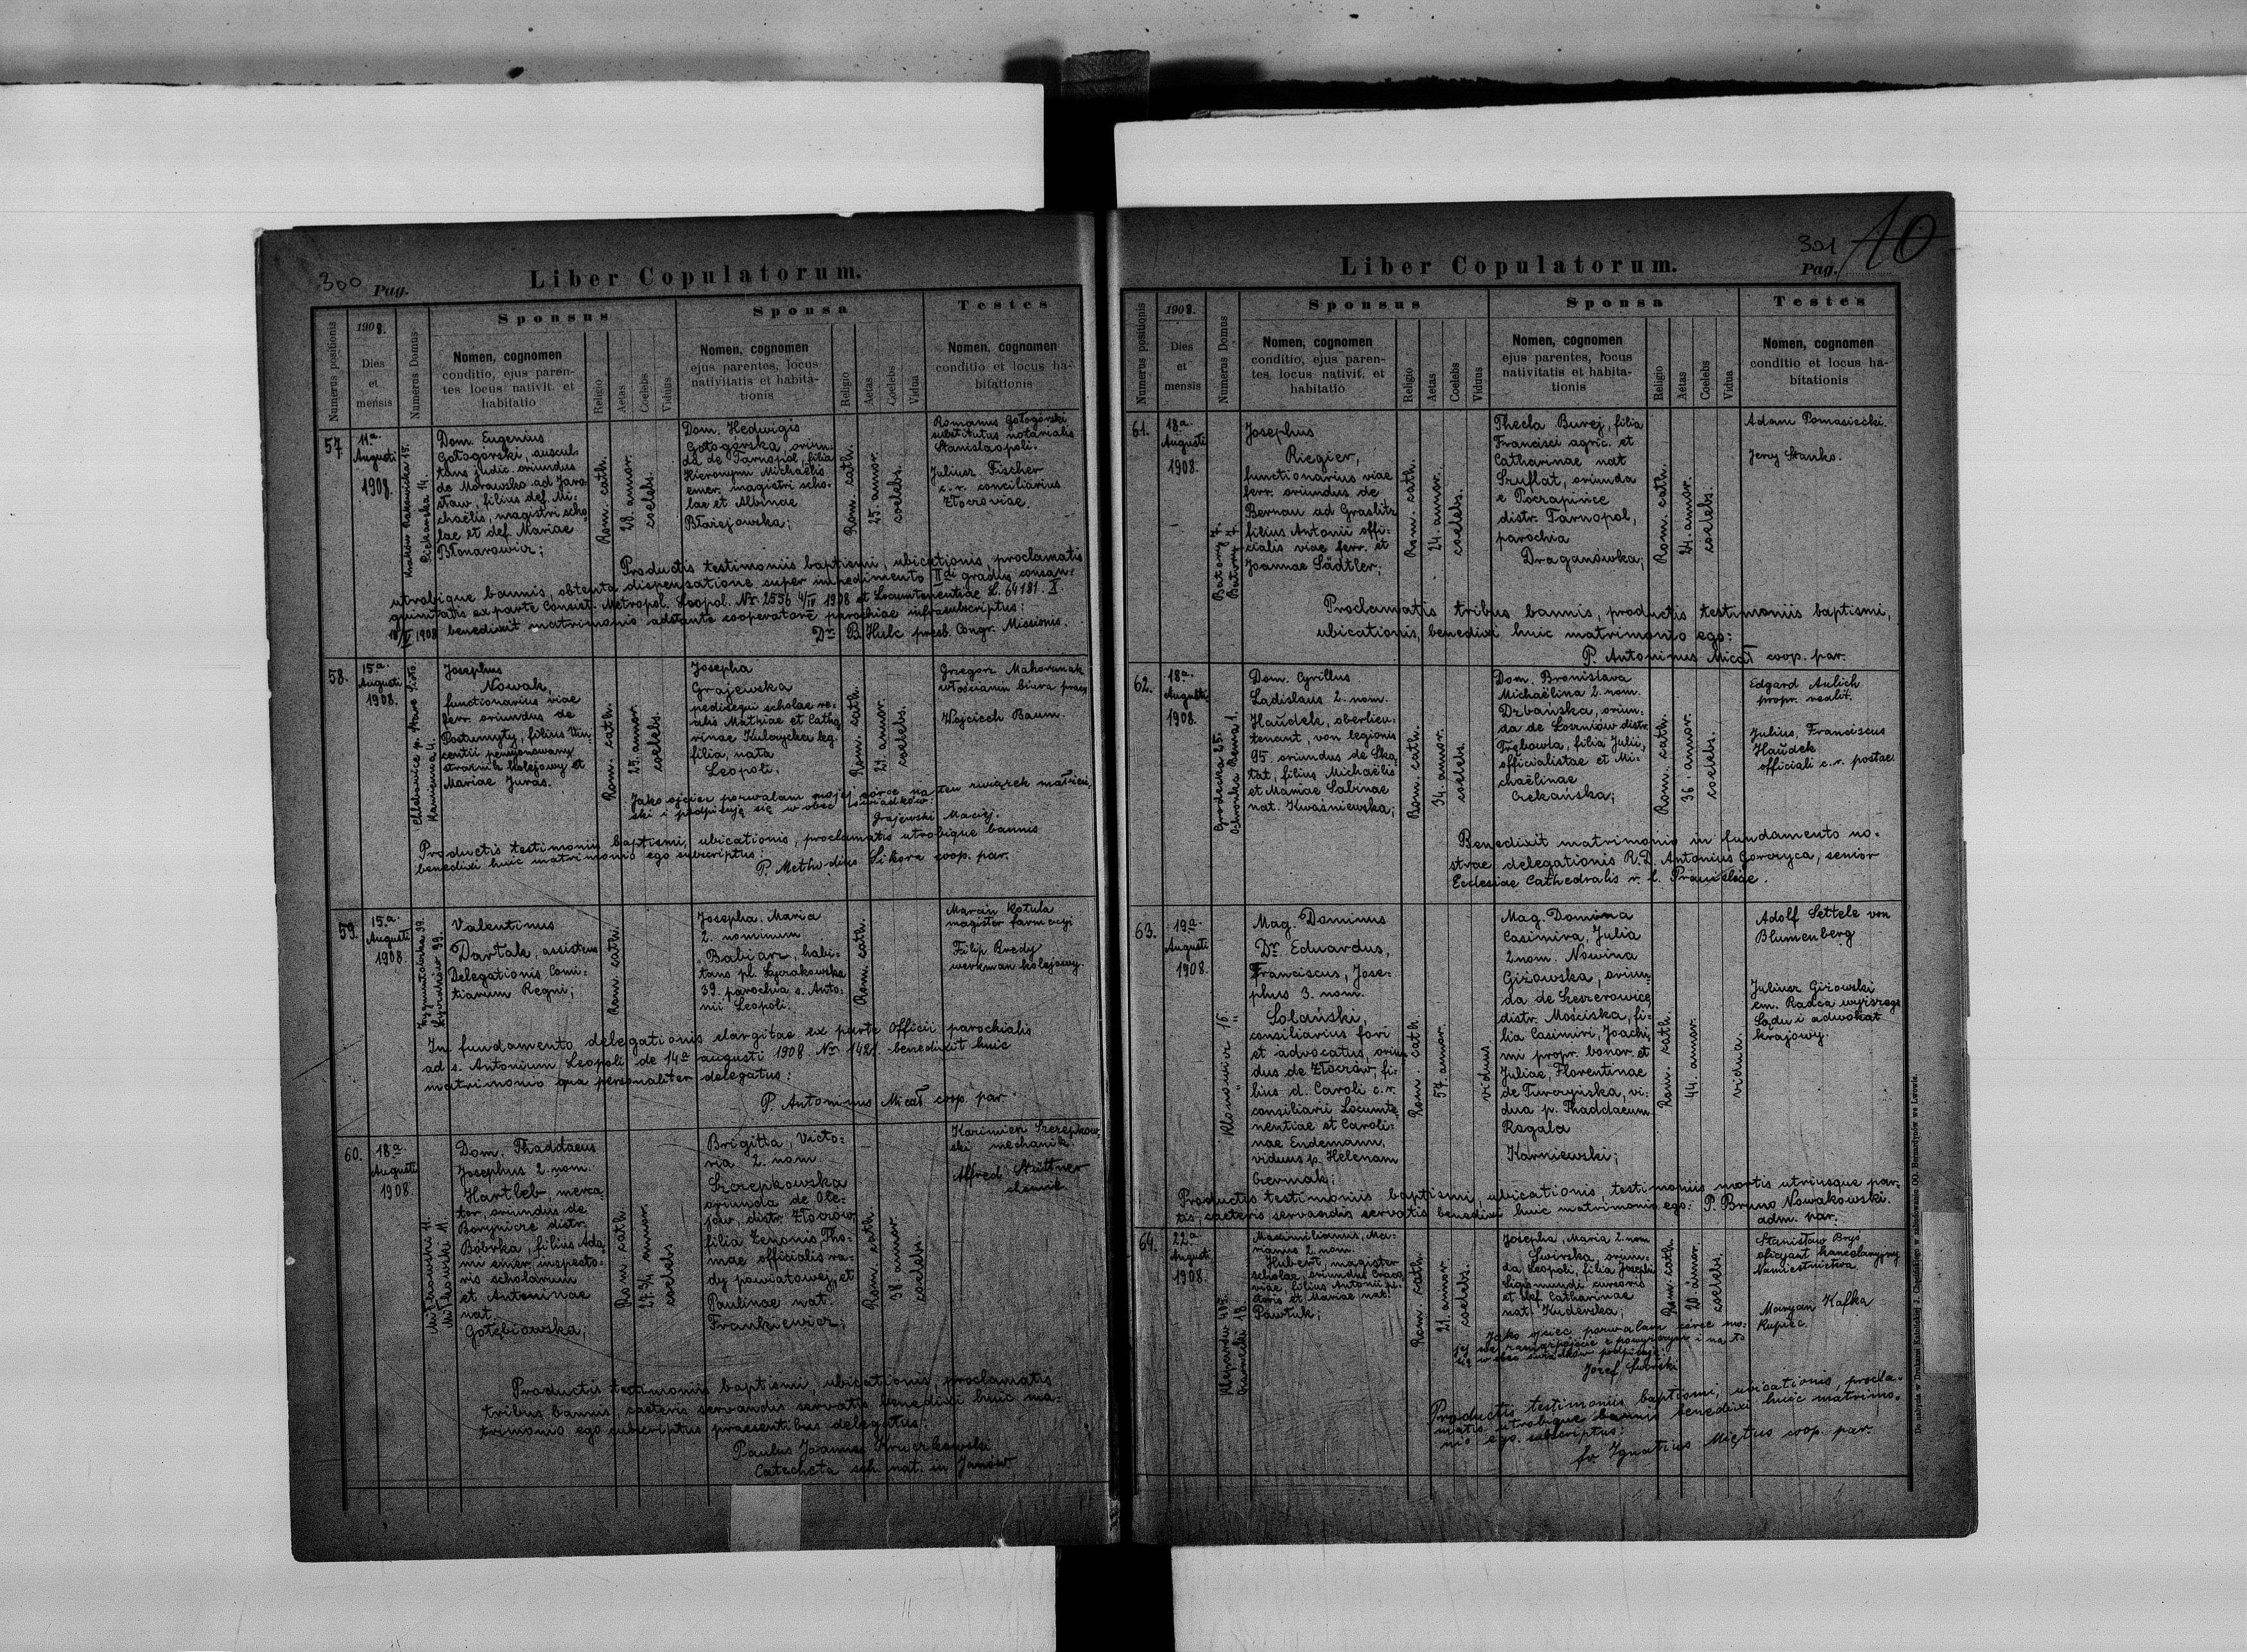 300 Pag.
Liber Copulatorum.
Numerus positionis
1908.
Dies
et
mensis
Numerus Domus
Sponsus
Nomen, cognomen
conditio, ejus paren-
tes locus nativit. et
habitatio
Religio
Aetas
Coelebs
Viduus
Sponsa
Nomen, cognomen
ejus parentes, locus
nativitatis et habita-
tionis
Religio
Aetas
Coelebs
Vidua
Testes
Nomen, cognomen
conditio et locus ha-
bitationis
57.
11a
Augusti
1908.
Piekarska 14.
Dom. Eugenius
Gołogórski, auscul-
tans judic. oriundus
de Morawsko ad Jaro
sław, filius def. Mi-
chaëlis, magistri scho
lae et def. Mariae
Błonarowicz;
Rom. cath.
28. annor.
coelebs.
Dom. Hedwigis
Gołogórska, oriun-
da de Tarnopol, filia
Hieronymi Michaëlis
emer. magistri scho-
lae et Albinae
Błażejowska;
Rom. cath.
25. annor.
coelebs.
Romanus Gołogórski
substitutus notarialis
Stanislaopoli.
Juliusz Fischer
c.r. conciliarius
Złoczoviae.
Productis testimoniis baptismi, ubicationis, proclamatis
utrobique bannis, obtenta dispensatione super impedimento IIdi gradus consan-
guinitatis ex parte Consist. Metropol. Leopol. Nr. 2556 4/IV 1908 et Locumtenentiae L. 64181. X.
1908 benedixit matrimonio adstante cooperatore parochiae infrasubscriptus:
Dr. B. Hulc presb. Congr. Missionis.
58.
15a
Augusti
1908.
Kamienna 4.
Josephus
Nowak,
functionarius viae
ferr. oriundus de
Postumyty, filius Vin-
centii pensjonowany
strażnik kolejowy et
Mariae Juras.
Rom. cath.
25. annor.
coelebs.
Josepha
Grajewska
pedissequi scholae re-
alis Mathiae et Catha
rinae Kulczycka leg.
filia, nata
Leopoli.
Rom. cath.
21. annor.
coelebs.
Grzegorz Mahorunak
włościanin biura pracy
Wojciech Baum.
Jako ojciec pozwalam mojej córce na ten związek małżeń-
ski i podpisuję się w obec świadków:
Grajewski Maciej.
Productis testimoniis baptismi, ubicationis, proclamatis utrobique bannis
benedixi huic matrimonio ego subscriptus:
P. Methodius Sikora coop. par.
59.
15a
Augusti
1908.
Zygmuntówka 99.
Łyczaków 99.
Valentinus
Dartak, assistens
Delegationis Comi-
tiarum Regni;
Rom. cath.
Josepha, Maria
2. nominum
Babiarz, habi-
tans pl. Łyczakowska
39. parochia s. Anto-
nii Leopoli.
Rom. cath.
Marcin Kotula
magister farmacyi
Filip Bredy
werkman kolejowy.
In fundamento delegationis elargitae ex parte Officii parochialis
ad s. Antonium Leopoli de 14a augusti 1908 Nr. 1421. benedixit huic
matrimonio qua personaliter delegatus:
P. Antoninus Micał coop. par.
60.
18a
Augusti
1908.
Miłkowski 11.
Miłkowski 11.
Dom. Thaddaeus
Josephus 2. nom.
Hartleb, merca-
tor, oriundus de
Borynicze distr.
Bóbrka, filius Ada-
mi emer. inspecto-
ris scholarum
et Antoninae
nat.
Gołębiowska;
Rom. cath.
27 3/4 annor.
coelebs
Brigitta, Victo-
ria 2. nom.
Szczepkowska
oriunda de Ole-
jów, distr. Złoczów,
filia Zenonis, Tho-
mae officialis ra-
dy powiatowej, et
Paulinae nat.
Frankiewicz;
Rom. cath.
38 annor.
coelebs.
Kazimierz Szczepkow-
ski mechanik.
Alfred Stüttner
chemik.
Productis testimoniis baptismi, ubicationis, proclamatis
tribus bannis, caeteris servandis servatis benedixi huic ma-
trimonio ego subscriptus praesentibus delegatus:
Paulus Joannes Kruczkowski
Catecheta sch. nat. in Janów.
301 10
Pag.
Liber Copulatorum.
Numerus positionis
1908.
Dies
et
mensis
Numerus Domus
Sponsus
Nomen, cognomen
conditio, ejus paren-
tes, locus nativit. et
habitatio
Religio
Aetas
Coelebs
Viduus
Sponsa
Nomen, cognomen
ejus parentes, locus
nativitatis et habita-
tionis
Religio
Aetas
Coelebs
Vidua
Testes
Nomen, cognomen
conditio et locus ha-
bitationis
61.
18a
Augusti
1908.
Batory 7
Batory 7
Josephus
Riegier,
functionarius viae
ferr. oriundus de
Bernau ad Graslitz
filius Antonii offi-
cialis viae ferr. et
Joannae Sädtler;
Rom. cath.
24. annor.
coelebs.
Thecla Burej, filia
Francisci agric. et
Catharinae nat
Szuflat, oriunda
e Poczapińce
distr. Tarnopol,
parochia
Draganówka;
Rom. cath.
24. annor.
coelebs.
Adam Pomasiecki.
Jerzy Stanko.
Proclamatis tribus bannis, productis testimoniis baptismi,
ubicationis, benedixi huic matrimonio ego:
P. Antoninus Micał coop. par.
62.
18a
Augusti
1908.
Gródecka 25.
Ochronka Bema 1.
Dom. Cyrillus
Ladislaus 2. nom.
Haŭdek, oberlieu-
tenant, von legionis
95. oriundus de Ska-
łat, filius Michaëlis
et Mariae Sabinae
nat. Kwaśniewska;
Rom. cath.
34. annor.
coelebs.
Dom. Bronislava
Michaëlina 2. nom.
Drbańska, oriun-
da de Łoszniów distr.
Trębowla, filia Julii,
officialistae et Mi-
chaëlinae
Czekańska;
Rom. cath.
36. annor.
coelebs.
Edgard Aulich
propr. realit.
Julius, Franciscus
Haŭdek
officiali c.r. postae.
Benedixit matrimonio in fundamento no-
strae delegationis R.D. Antonius Gorczyca, senior
Ecclesiae Cathedralis r. l. Premisliae.
63.
19a
Augusti
1908.
Klonowicz 16.
Mag. Dominus
Dr. Eduardus,
Franciscus, Jose-
phus 3. nom.
Solański,
consiliarius fori
et advocatus, oriun
dus de Złoczów, fi-
lius d. Caroli c.r.
consiliarii Locumte
nentiae et Caroli-
nae Endemann,
viduus p. Helenam
Czermak;
Rom. cath.
57. annor.
viduus
Mag. Domina
Casimira, Julia
2 nom. Nowina
Giżowska, oriun-
da de Szeszerowice
distr. Mościska, fi-
lia Casimiri, Joachi-
mi propr. bonor. et
Juliae, Florentinae
de Turczyńska, vi-
dua p. Thaddaeum
Rogala
Karniewski;
Rom. cath.
44. annor.
vidua.
Adolf Settele von
Blumenberg
Juliusz Giżowski
em. Radca wyższego
Sądu i adwokat
krajowy.
Productis testimoniis baptismi, ubicationis, testimoniis mortis utriusque par-
tis, caeteris servandis servatis benedixi huic matrimonio ego: P. Bruno Nowakowski.
adm. par.
64.
22a
Augusti
1908.
Kleparów 405.
18.
Maximilianus, Ma-
rianus 2. nom.
Hubert, magister
scholae, oriundus Craco-
viae, filius Antonii pi-
storis et Mariae nat.
Pawluk;
Rom. cath.
21. annor
coelebs.
Josepha, Maria 2. nom
Swirska, oriun-
da Leopoli, filia Josephi
Sigismundi cursoris
et def. Catharinae
nat. Kuderska;
Rom. cath.
20. annor.
coelebs.
Stanisław Bryś
oficyant kancelaryjny
Namiestnictwa
Maryan Kafka
Kupiec.
Jako ojciec pozwalam córce mo-
jej na zamążpójście z powyższym i na to
się w obec świadków podpisuję:
Józef Swirski
Productis testimoniis baptismi, ubicationis, procla-
matis utrobique bannis benedixi huic matrimo-
nio ego subscriptus:
fr Ignatius Miętus coop. par.
Do nabycia w Drukarni Katolickiej J. Chęcińskiego w zabudowaniu OO. Bernardynów we Lwowie.